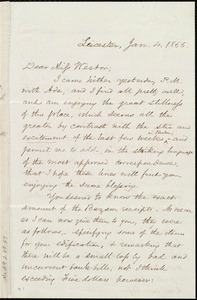 Leicester, Jan. 4. 1855.
Dear Miss Weston,
I came hither yesterday P.M.
with Ada, and I find all pretty well,
and am enjoying the great stillness
of this place, which seems all the
greater by contrast with the stir and
excitement of the past few weeks,
and need me to add, in the striking language
of the most approved correspondence,
that I hope these lines will find you
enjoying the same blessing.
You desire to know the exact
amount of the Bazaar receipts. As near
as I now can give them to you, they were
as follows, specifying some of the items
for your edification, & remarking that
there will be a small loss by bad and
uncurrent bank bills, not I think
exceeding five dollars however: